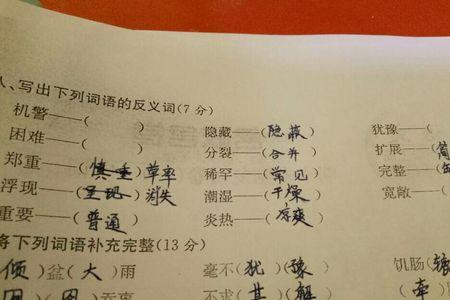 、写出下列词语的反义词(7 分)
机警——( )
困难——( ) 隐藏——(隐蔽 犹豫——(
郑重——(慎重)草率 分裂——(合并) 扩展——(简
浮现——(呈现)消失 稀罕——(常见) 完整——(
重要——(普通) 潮湿——(干燥 宽敞——(
炎热——(凉爽)
将下列词语补充完整(13 分)
倾)盆(大)雨 毫不(犹)(豫) 饥肠(辘
吞枣 不求(其) (牵